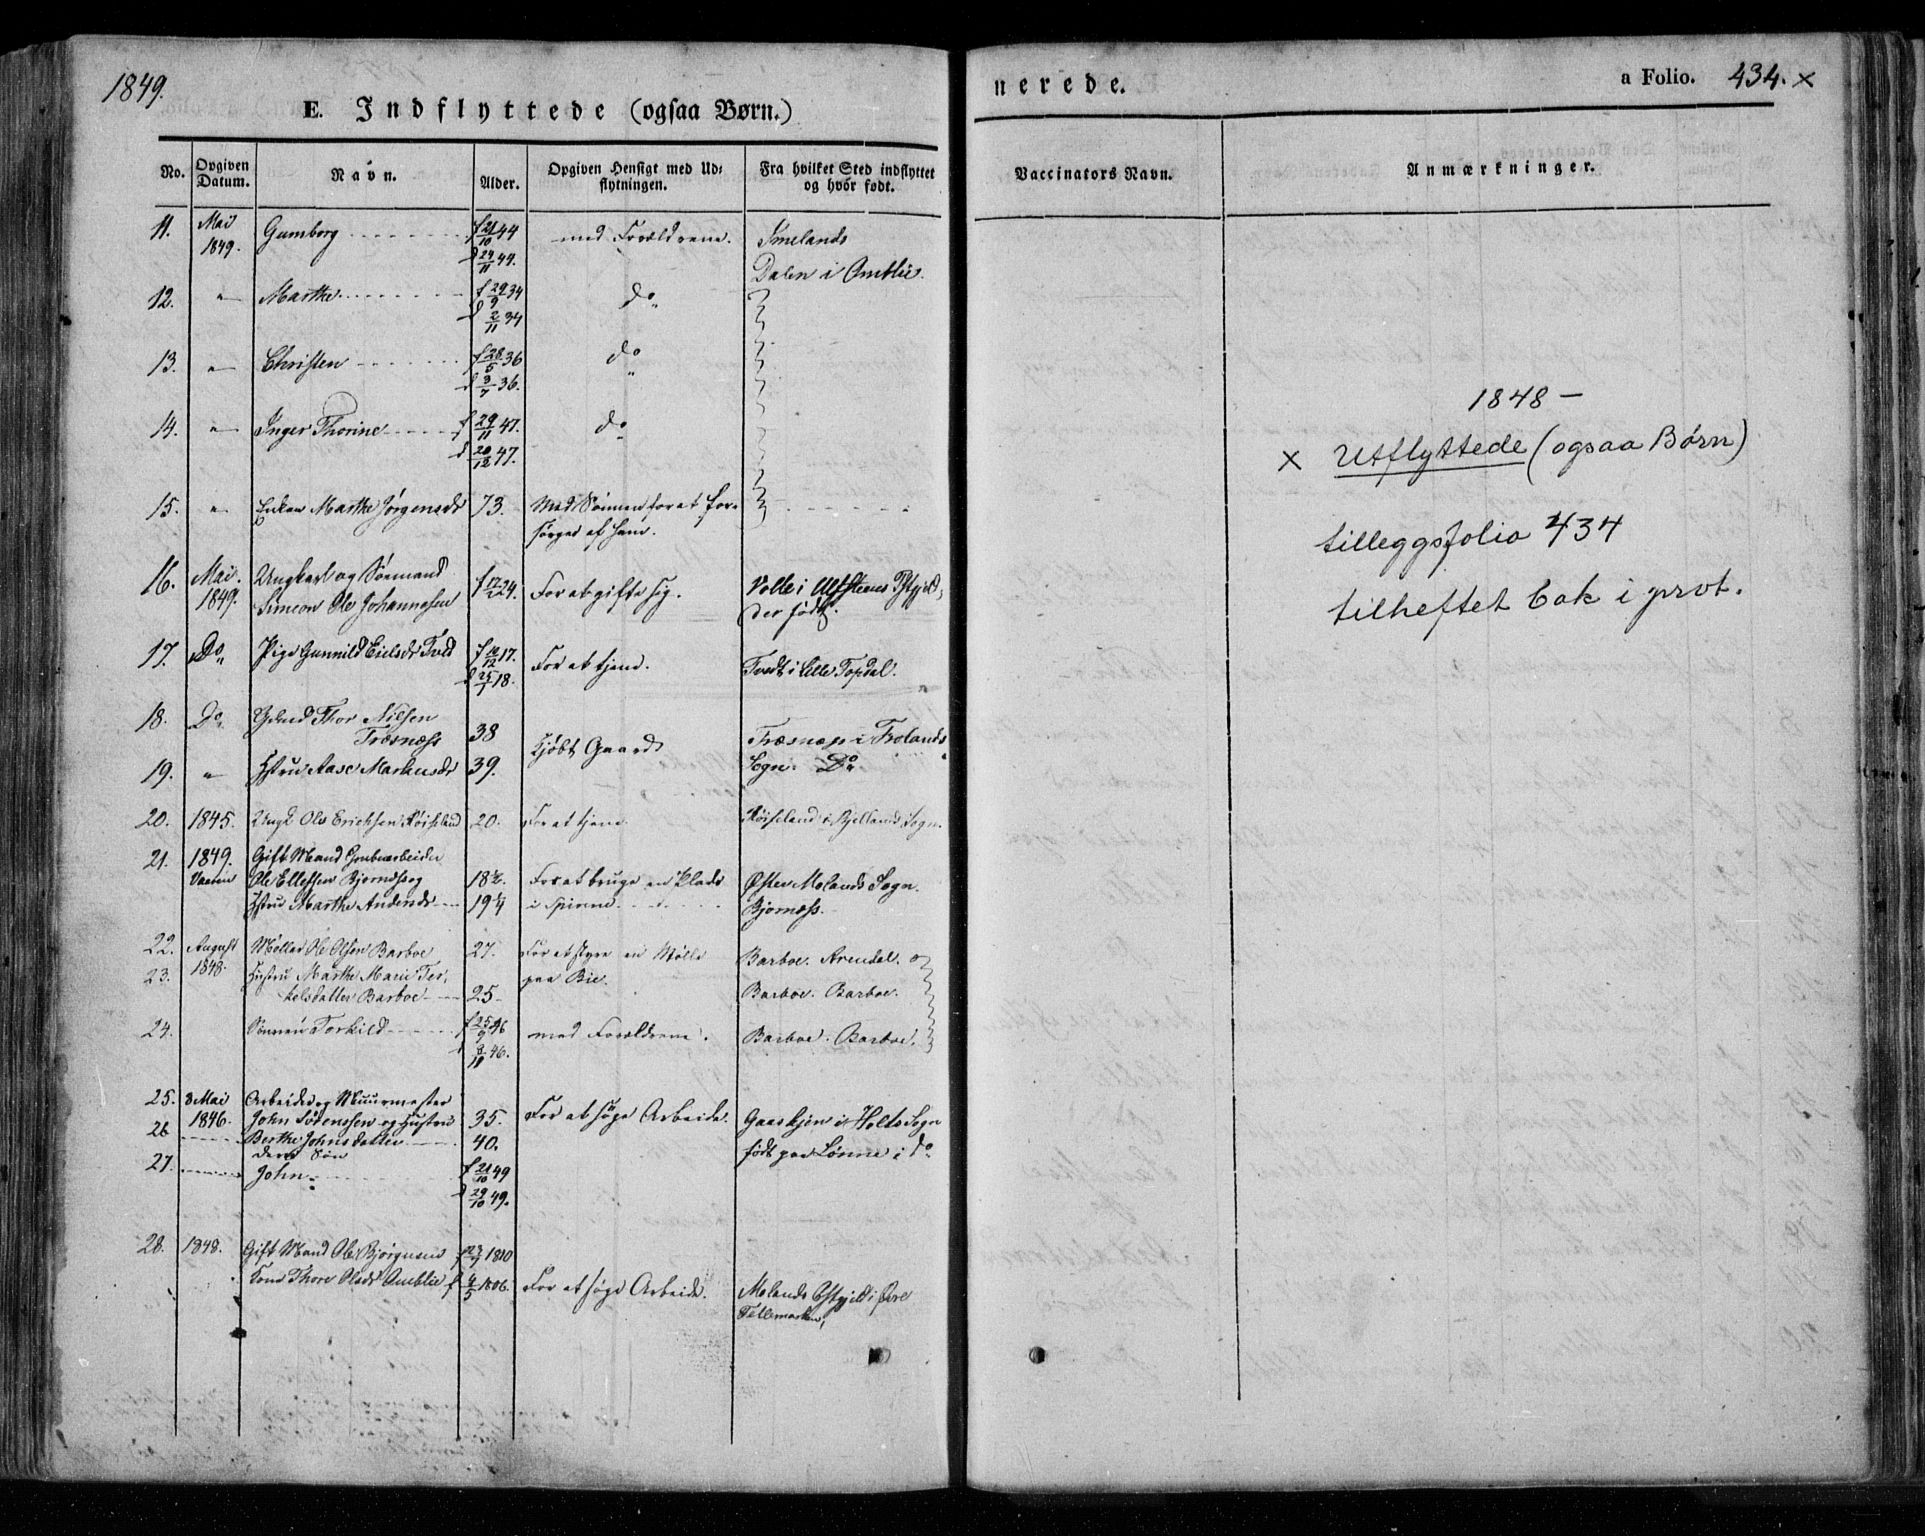 1849.
E. Indflyttede (ogsaa Børn.)
No. Opgiven Datum. Navn. Alder. Opgiven Hensigt med Udflytningen. Fra hvilket Sted indflyttet og hvor født.
11. Mai 1849. Gumborg f 21/10 44 med Forældrene. Smelands
d 24/11 44. Dalen i Omblie.
12. " Marthe f 29/9 34 do
d 2/11 34
13. " Christen f 28/5 36 do
d 3/7 36.
14. " Inger Thorine f 29/11 47. do
d 20/12 47.
15. " Enken Marthe Jørgensdr 73. Med Sønnen for at for-
sørges af ham.
16. Mai 1849. Ungkarl og Sømand f 12/1 24. For at gifte sig. Volle i Præstgjeld,
Simeon Ole Johannesen der født.
17. Do Pige Gunnild Eielsdr Tved f 10/12 17. For at tjene. Tvedt i Lille Topdal.
d 25/1 18.
18. Do Thor Nilsen
Træsnæss 38 Kjøbt Gaard Træsnæs i Frolands
19. " Hstru Aase Markusdr 39. Sogn. Do
20. 1845. Ungk Ole Erichsen Røiseland 20. For at tjene Røiseland i Bjellands Sogn.
21. 1849. Gift Mand Grubearbeider
Ole Ellefsen Bjornæs og 18 For at bruge en Plads Øster Molands Sogn.
Hstru Marthe Andersdr 19 i Spirene Bjornæss.
22. August Møller Ole Olsen Barboe 27. For at styre en Mølle Barboe. Arendal.
23. 1848. Hustru Marthe Marie Ter-
kelsdatter Barboe 25 paa Bie. Barboe. Barboe.
24. Sønnen Torkild f 25/9 46 med Forældrene. Barboe. Barboe.
d 8/11 46.
25. 3 Mai Arbeider og Muurmester
26 1846. John Sørenssen og Hustru 35. For at søge Arbeide. Gaaskjen i Holts Sogn
Berthe Johnsdatter 40. født paa Lønne i do
27. deres Søn
John f 21/10 49
d 29/10 49.
28. 1848. Gift Mand Ole Bjørgusen 1810
Kone Thore Olsdr Omblie f 4/5 1806. For at søge Arbeide. Molands Pstgjeld i Øvre
Tellemarken,
nerede.
a Folio. 434. x
Vaccinators Navn. Anmærkninger.
1848 –
x Utflyttede (ogsaa Børn)
tilleggsfolio 434
tilheftet bak i prot.